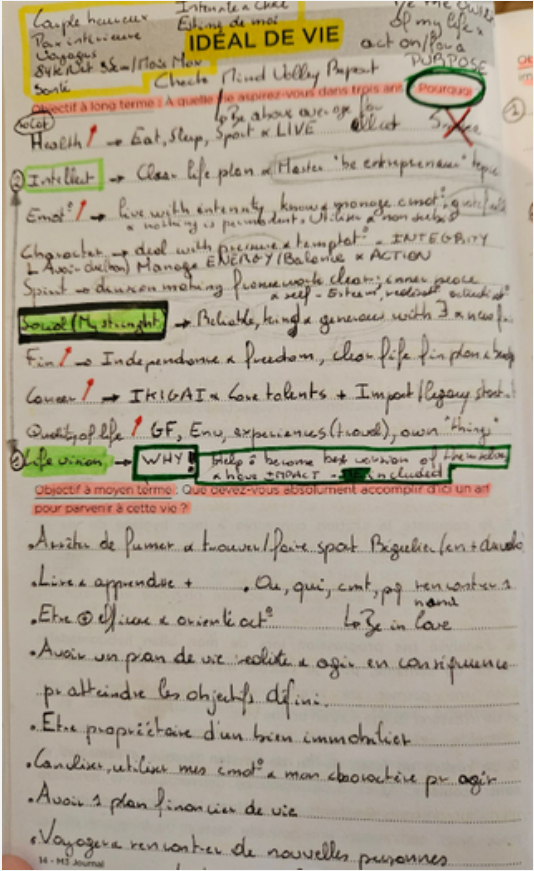 Couple heureux
Paix intérieure
Voyages
Santé
Estime de moi
of my life &
act on/for a
PURPOSE
IDÉAL DE VIE
Check Mind Valley
Objectif à long terme : À quelle vie aspirez-vous dans trois ans
Pourquoi
Be above average for
Health → Eat, Sleep, Sport & LIVE
② Intellect → Clear life plan & Master "be entrepreneur"
Emot° → live with intensity, know & manage emot°
& nothing is permanent. Utiliser & non
Character → deal with pressure & temptat° - INTEGRITY
Manage ENERGY/Balance & ACTION
Spirit → decision making framework clear; inner peace
& self-Esteem,
Social (My strenght) → Reliable, kind & generous with
Fin → Independance & freedom, clear life fin plan &
Career → IKIGAI & Core talents + Impact/legacy
Quality of life GF, Env, experiences (travel), own "things"
① Life vision → WHY! Help to become best version of themselves
& have IMPACT included
Objectif à moyen terme : Que devez-vous absolument accomplir d'ici un an
pour parvenir à cette vie ?
. Arrêter de fumer & trouver/faire sport Régulier
. Lire & apprendre + . Ou, qui, cmt, pq rencontrer 1
. Etre ⊕ efficace & orienté act° ↳ Be in love
. Avoir un plan de vie réaliste & agir en conséquence
pr atteindre les objectifs défini.
. Etre propriétaire d'un bien immobilier
. Canaliser, utiliser mes émot° & mon charactère pr agir
. Avoir 1 plan financier de vie
. Voyager & rencontrer de nouvelles personnes
14 - M3 Journal